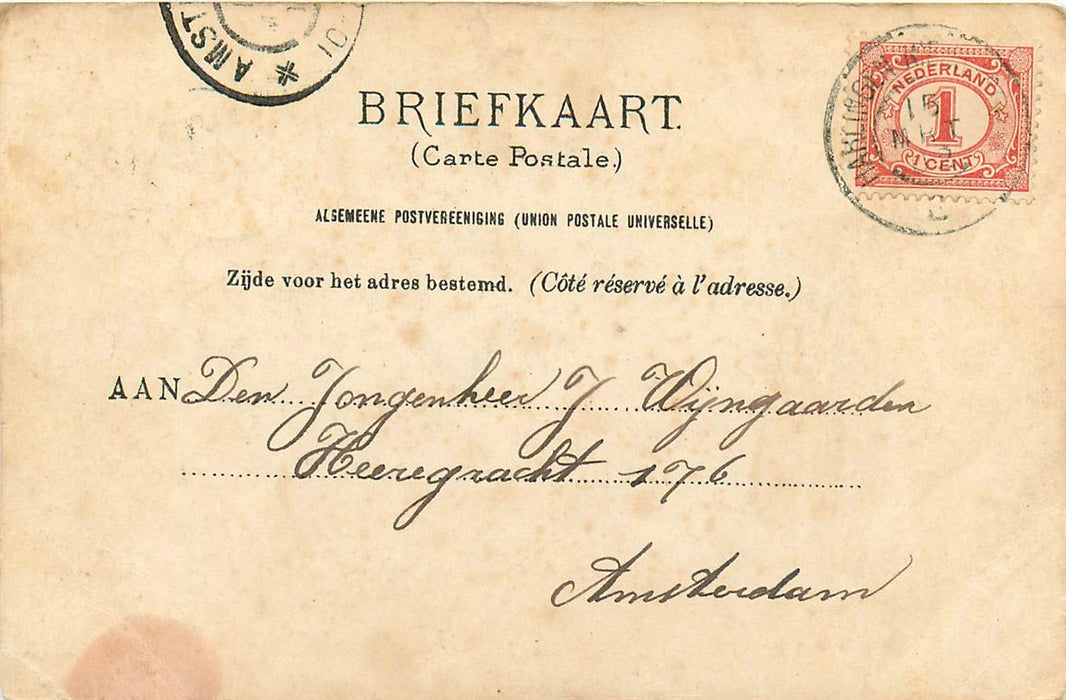 AMST
10-
BRIEFKAART.
(Carte Postale.)
NEDERLAND
1
1 CENT
ALGEMEENE POSTVEREENIGING (UNION POSTALE UNIVERSELLE)
Zijde voor het adres bestemd. (Côté réservé à l'adresse.)
AAN Den Jongenheer J Wijngaarden
Heeregracht 176
Amsterdam